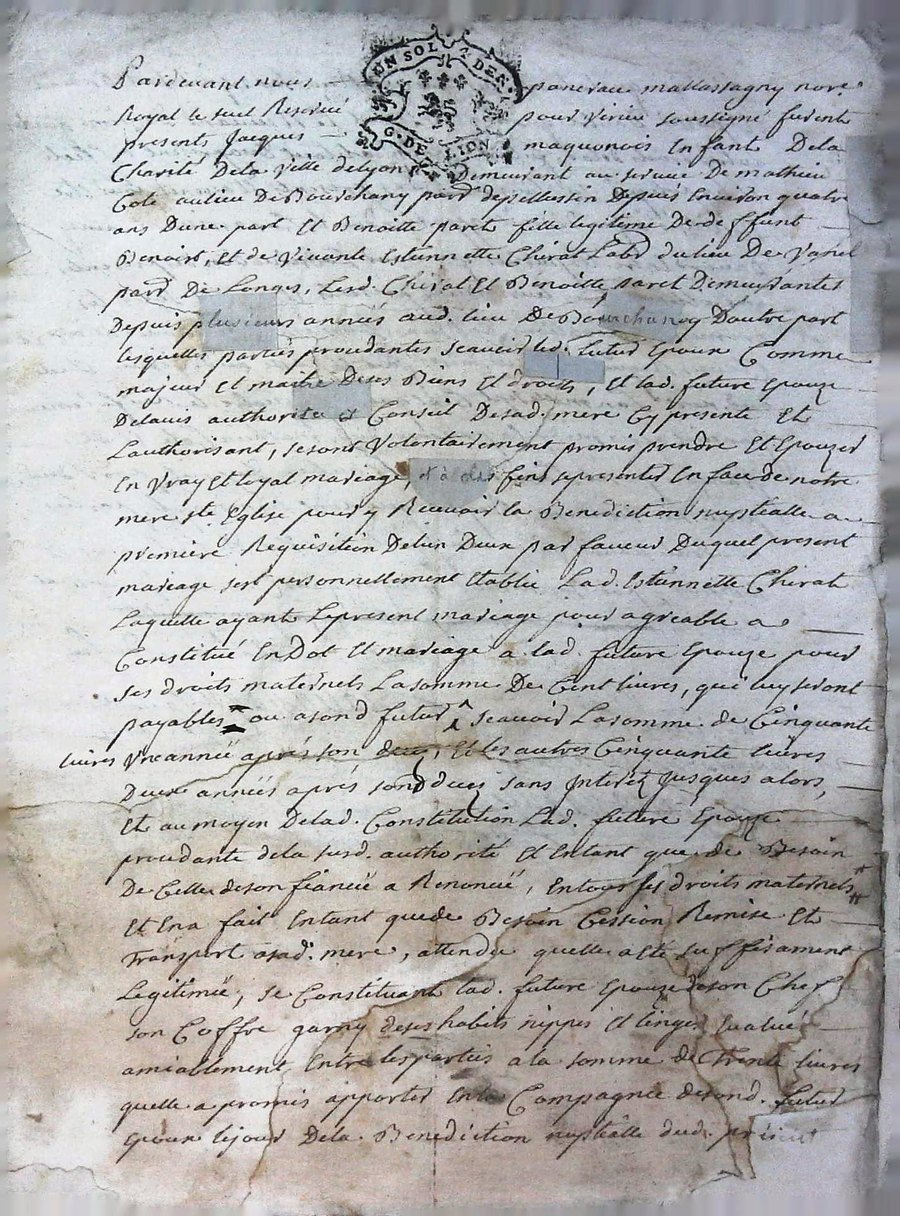 UN SOL 4 DEN.
G. DE LION
Pardevant nous pancrau mallassagny nore.
Royal le seul Reservé pour virieu soussigné furent
presents Jacques maquonois Enfant Dela
Charité Dela ville delyon Demeurant au service De mathieu
Cote aulieu De Bourchany parr. depellussin Depuis Environ quatre
ans Dune part Et Benoitte paret fille legitime De deffunt
Benoist, Et de vivante Estiennette Chirat Labr. dulieu De Vanel
parr. De Longes, Lesd. Chirat Et Benoitte paret Demeurantes
Depuis plusieurs années aud. lieu de Bourchany Dautre part
lesquelles parties procedantes scavoir led. futur Epoux Comme
majeur Et maitre De ses Biens Et droits, Et lad. future Epouze
Delavis authorité et Conseil Desad. mere Cy presente Et
Lauthorisant, se sont volontairement promis prendre Et Epouzer
En vray Et loyal mariage, et à ces fins se presenter En face de notre
mere ste Eglise pour y Recevoir la Benediction nuptialle a
premiere Requisition De lun Deux par faveur Duquel present
mariage sest personnellement Etablie Lad. Estiennette Chirat
Laquelle ayant Lepresent mariage pour agreable a
Constitué En Dot Et mariage a lad. future Epouze pour
ses droits maternels La somme De Cent livres, qui luy seront
payables ou a sond futur scavoir La somme de Cinquante
livres Une année aprés son deces, Et les autres Cinquante livres
Deux années aprés sond deces sans Interêt jusques alors,
Et au moyen Delad. Constitution Lad. future Epouze
procedante dela susd. authorité Et Entant que de Besoin
De Celle de son fiancé a Renoncé, En tous ses droits maternels
Et En a fait Entant que de Besoin Cession Remise Et
Transport a sad. mere, attendu quelle a eté suffisament
Legitimée, se Constituant lad. future Epouze de son Chef
son Coffre garny de ses habits nippes Et linges Evalué
amiablement Entre les parties a la somme de Trente livres
quelle a promis apporter En la Compagnie de sond. futur
Epoux le jour Dela Benediction nuptialle dud. present